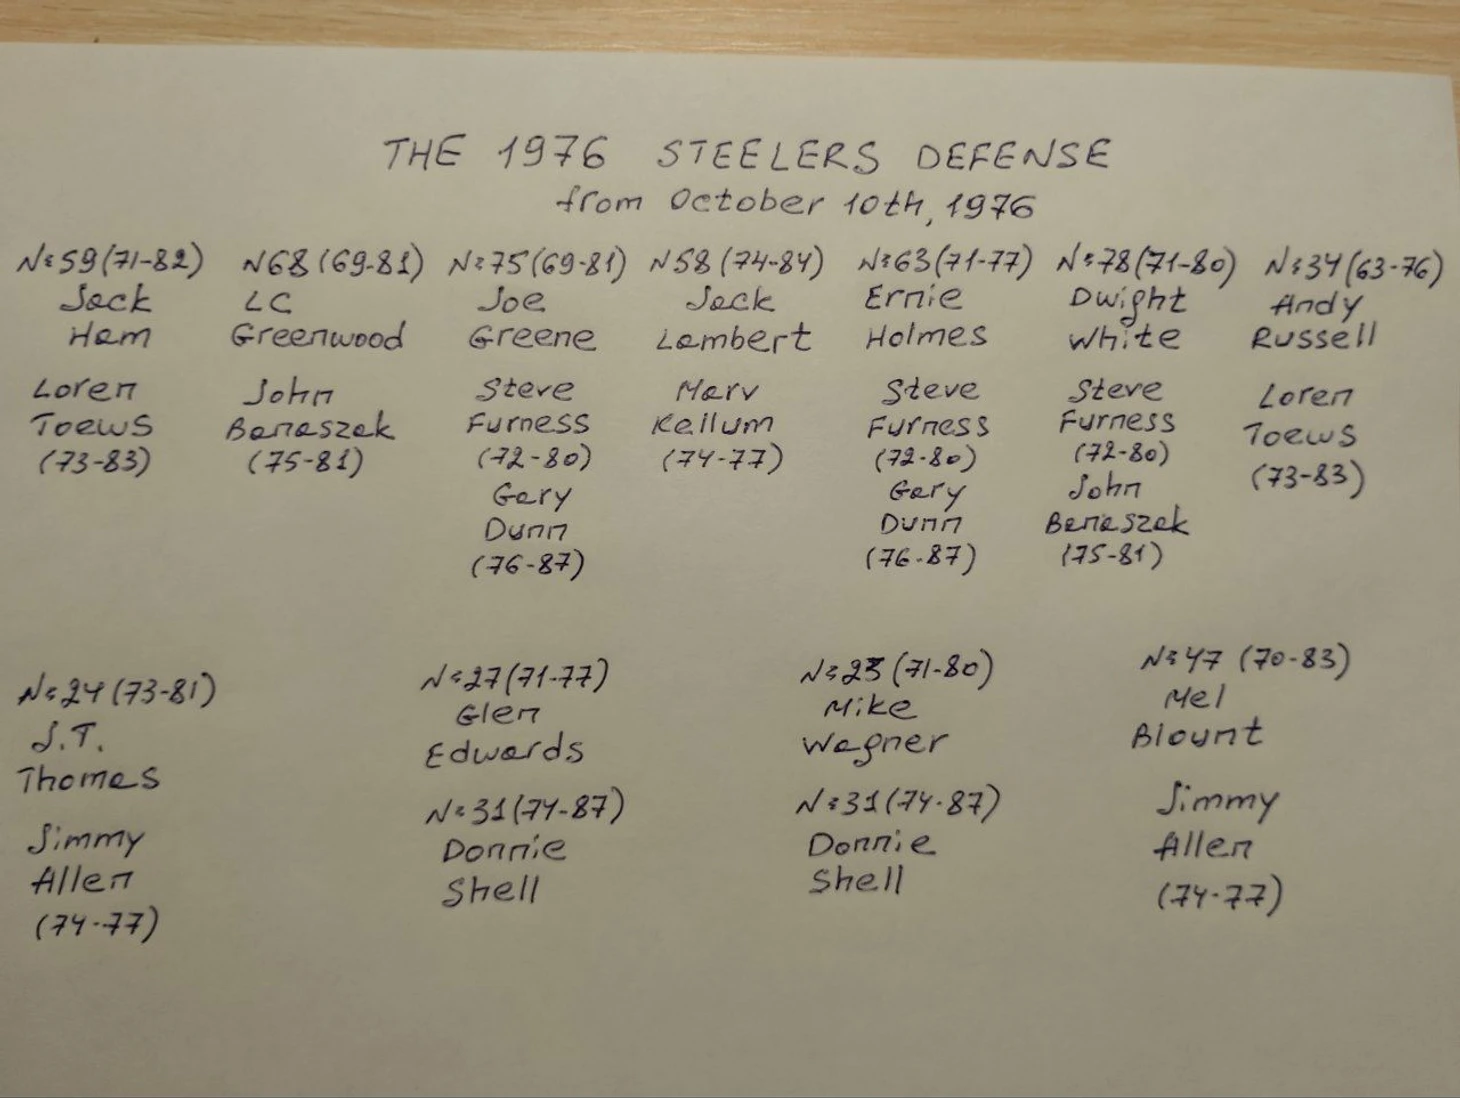 THE 1976 STEELERS DEFENSE
from October 10th, 1976
№59(71-82) N68(69-81) №75(69-81) N58(74-84) №63(71-77) №78(71-80) №34(63-76)
Jack LC Joe Jack Ernie Dwight Andy
Ham Greenwood Greene Lambert Holmes White Russell
Loren John Steve Marv Steve Steve Loren
Toews Banaszak Furness Kellum Furness Furness Toews
(73-83) (75-81) (72-80) (74-77) (72-80) (72-80) (73-83)
Gary Gary John
Dunn Dunn Banaszak
(76-87) (76-87) (75-81)
№24(73-81) №27(71-77) №23(71-80) №47 (70-83)
J.T. Glen Mike Mel
Thomas Edwards Wagner Blount
№31(74-87) №31(74-87)
Jimmy Donnie Donnie Jimmy
Allen Shell Shell Allen
(74-77) (74-77)